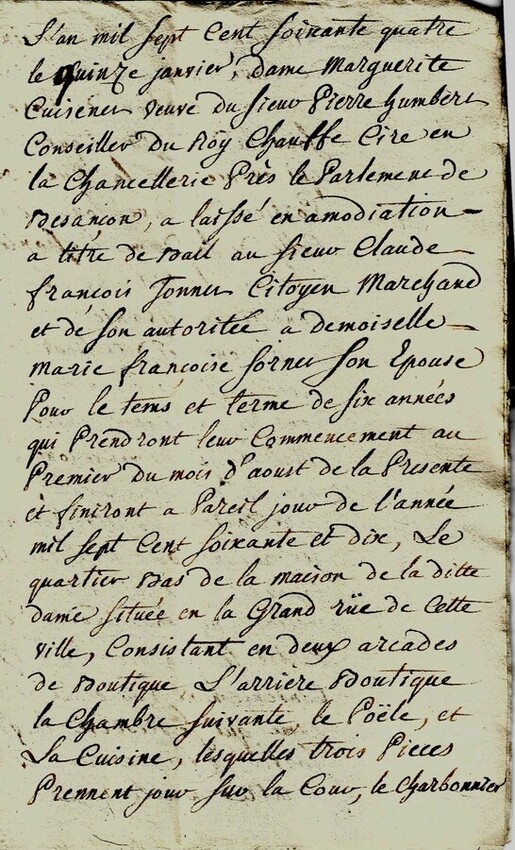 L'an mil sept Cent soixante quatre
le quinze janvier, dame Marguerite
Cuisenet veuve du sieur Pierre humbert
Conseiller du Roy Chauffe Cire en
la Chancellerie Près le Parlement de
Besançon, a laissé en amodiation
a titre de Bail au sieur Claude
françois Tonnet Citoyen Marchand
et de son autoritée a demoiselle
marie françoise sornet son Epouse
Pour le tems et terme de six années
qui Prendront leur Commencement au
Premier du mois d'aoust de la Presente
et finiront a Pareil jour de l'année
mil sept Cent soixante et dix, Le
quartier Bas de la maison de la ditte
dame située en la Grand rüe de Cette
ville, Consistant en deux arcades
de Boutique L'arriere Boutique
la Chambre suivante, le Poële, et
La Cuisine, lesquelles trois Pieces
Prennent jour sur la Cour, le Charbonnier